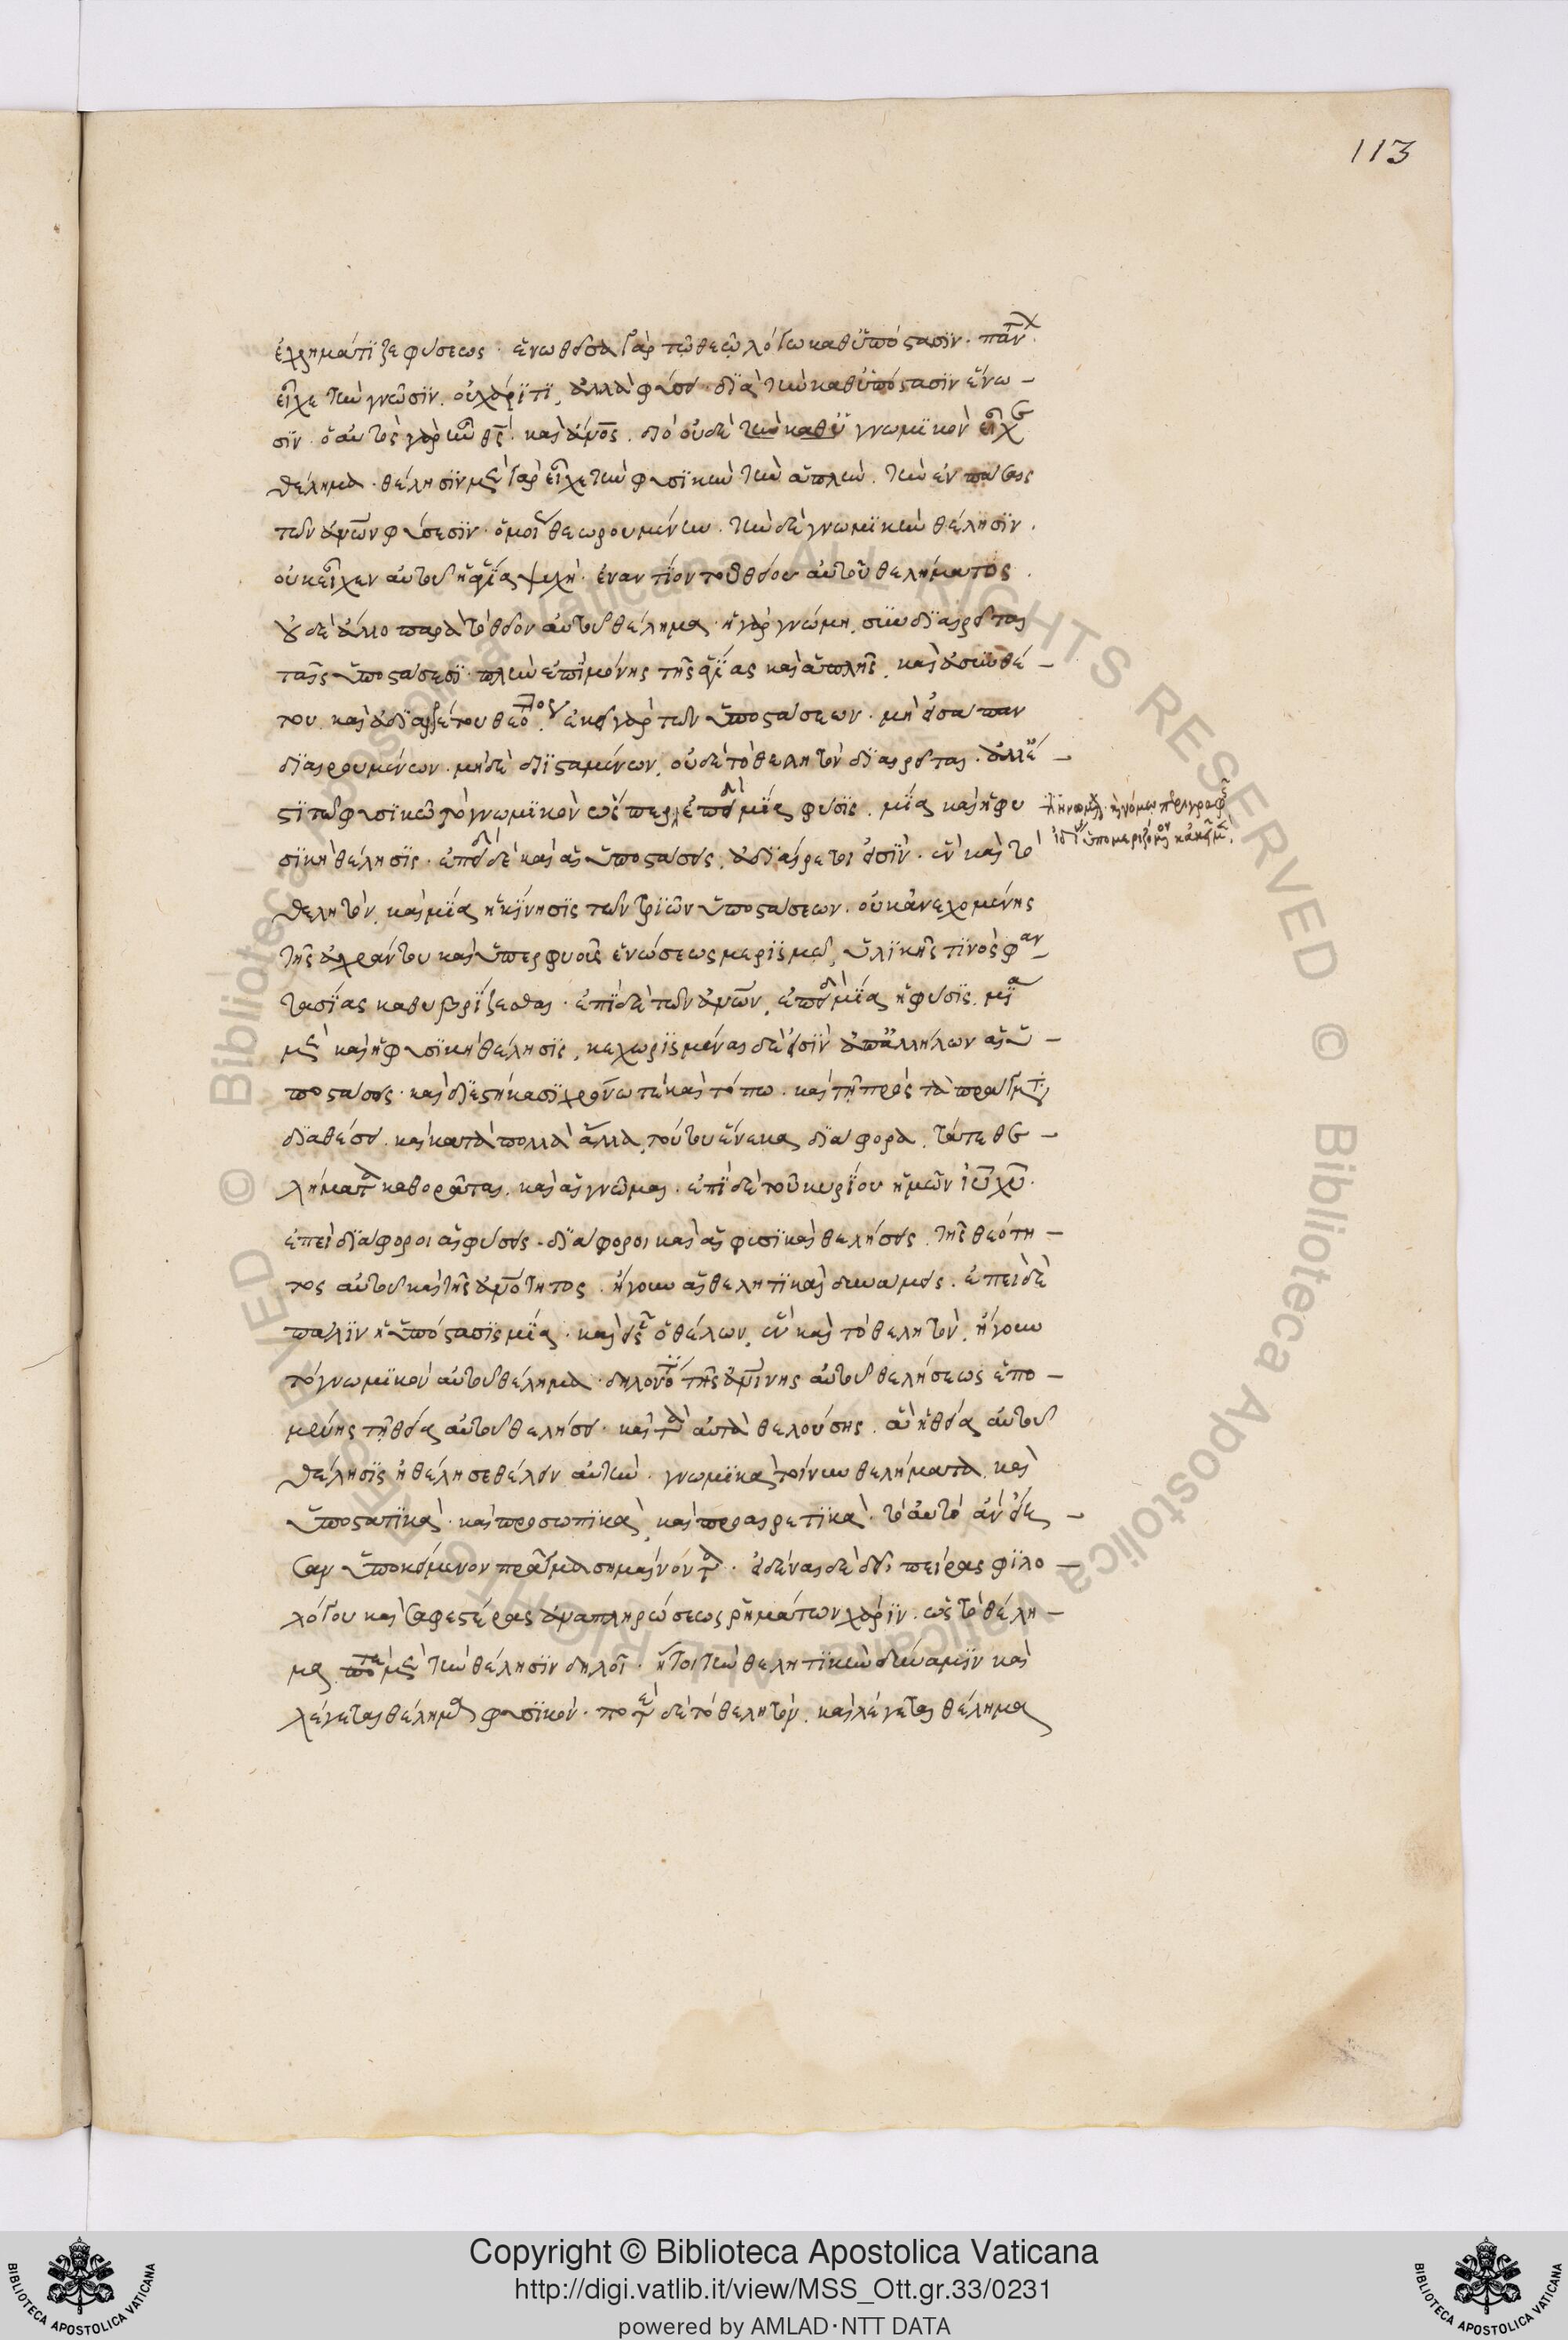 113
ἐχρημάτιζε φύσεως · ἑνωθεῖσα γὰρ τῷ θεῷ λόγῳ καθ' ὑπόστασιν · πάντων
εἶχε τὴν γνῶσιν. οὐ χάριτι, ἀλλὰ φύσει · διὰ τὴν καθ' ὑπόστασιν ἕνω –
σιν · ὁ αὐτὸς γὰρ ἦν θς̅ · καὶ ἄνο̅ς · διὸ οὐδὲ τὴν καθ' ὑ γνωμικὸν εἶχε
θέλημα · θέλησιν μὲν γὰρ εἶχε τὴν φυσικὴν τὴν ἁπλῆν. τὴν ἐν πάσαις
τῶν ἀν̅ων φύσεσιν · ὁμοίως θεωρουμένην · τὴν δὲ γνωμικὴν θέλησιν ·
οὐκ εἶχεν αὐτοῦ ἡ ἁγία ψυχὴ · ἐναντίον τοῦ θείου αὐτοῦ θελήματος ·
οὐδὲ ἄλλο παρὰ τὸ θεῖον αὐτοῦ θέλημα · ἡ γὰρ γνώμη, συνδιαιρεῖται
ταῖς ὑποστάσεσι · πλὴν ἐπὶ μόνης τῆς ἁγίας καὶ ἁπλῆς, καὶ ἀσυνθέ –
του καὶ ἀδιαιρέτου θεότητος · ἐκεῖ γὰρ τῶν ὑποστάσεων · μὴ εἰσάπαν
διαιρουμένων · μηδὲ διϊσταμένων, οὐδὲ τὸ θελητὸν διαιρεῖται · ἀλλ' ἕ –
στι τῷ φυσικῷ τὸ γνωμικὸν ὥσπερ, ἐπειδὴ μία φύσις, μία καὶ ἡ φυ
σικὴ θέλησις · ἐπειδὴ δὲ καὶ αἱ ὑποστάσεις, ἀδιαίρετοί εἰσιν · ἓν καὶ τὸ
θελητὸν, καὶ μία ἡ κίνησις τῶν τριῶν ὑποστάσεων · οὐκ ἀνεχομένης
τῆς ἀχράντου καὶ ὑπερφυοῦς ἑνώσεως μερισμῷ, ὑλικῆς τινὸς φαν –
τασίας καθυβρίζεσθαι · ἐπὶ δὲ τῶν ἀν̅ων, ἐπειδὴ μία ἡ φύσις, μία
μὲν καὶ ἡ φυσικὴ θέλησις, κεχωρισμέναι δὲ εἰσὶν ἀπ' ἀλλήλων αἱ ὑ –
ποστάσεις · καὶ διεστήκασι χρόνῳ τὲ καὶ τόπῳ · καὶ τῇ πρὸς τὰ πράγματα
διαθέσει · καὶ κατὰ πολλὰ ἄλλα, τούτου ἕνεκα διάφορα, τά τε θε –
λήματα καθορᾶται, καὶ αἱ γνῶμαι · ἐπὶ δὲ τοῦ κυρίου ἡμῶν ιυ̅ χυ̅ ·
ἐπεὶ διάφοροι αἱ φύσεις · διάφοροι καὶ αἱ φυσικαὶ θελήσεις · τῆς θεότη –
τος αὐτοῦ καὶ τῆς ἀν̅ότητος · ἤγουν αἱ θελητικαὶ δυνάμεις · ἐπεὶ δὲ
πάλιν ἡ ὑπόστασις μία · καὶ εἷς ὁ θέλων, ἓν καὶ τὸ θελητὸν, ἤγουν
τὸ γνωμικὸν αὐτοῦ θέλημα · δηλονότι τῆς ἀν̅ίνης αὐτοῦ θελήσεως ἑπο –
μένης τῇ θείᾳ αὐτοῦ θελήσει · καὶ ταῦτα αὐτὰ θελούσης, ἃ ἡ θεία αὐτοῦ
θέλησις ἤθέλησε θέλειν αὐτὴν · γνωμικὰ τοίνυν θελήματα, καὶ
ὑποστατικὰ · καὶ προσωπικὰ, καὶ προαιρετικὰ · τὸ αὐτὸ ἂν εἴη –
σαν ὑποκείμενον πρᾶγμα σημαίνοντα · εἰδέναι δὲ δεῖ πείρας φιλο –
λόγου καὶ σαφεστέρας ἀναπληρώσεως ῥημάτων χάριν · ὡς τὸ θέλη –
μα ποτὲ μὲν τὴν θέλησιν δηλοῖ · ἤτοι τὴν θελητικὴν δύναμιν καὶ
λέγεται θέλημα φυσικόν · ποτὲ δὲ τὸ θελητὸν, καὶ λέγεται θέλημα
Copyright © Biblioteca Apostolica Vaticana
http://digi.vatlib.it/view/MSS_Ott.gr.33/0231
powered by AMLAD·NTT DATA